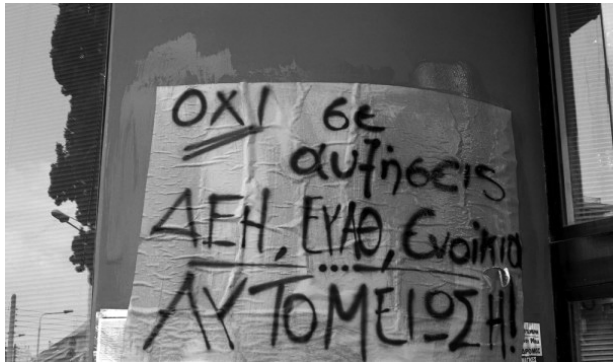 ΟΧΙ σε
αυξήσεις
ΔΕΗ, ΕΥΑΘ, Ενοίκια
ΑΥΤΟΜΕΙΩΣΗ!